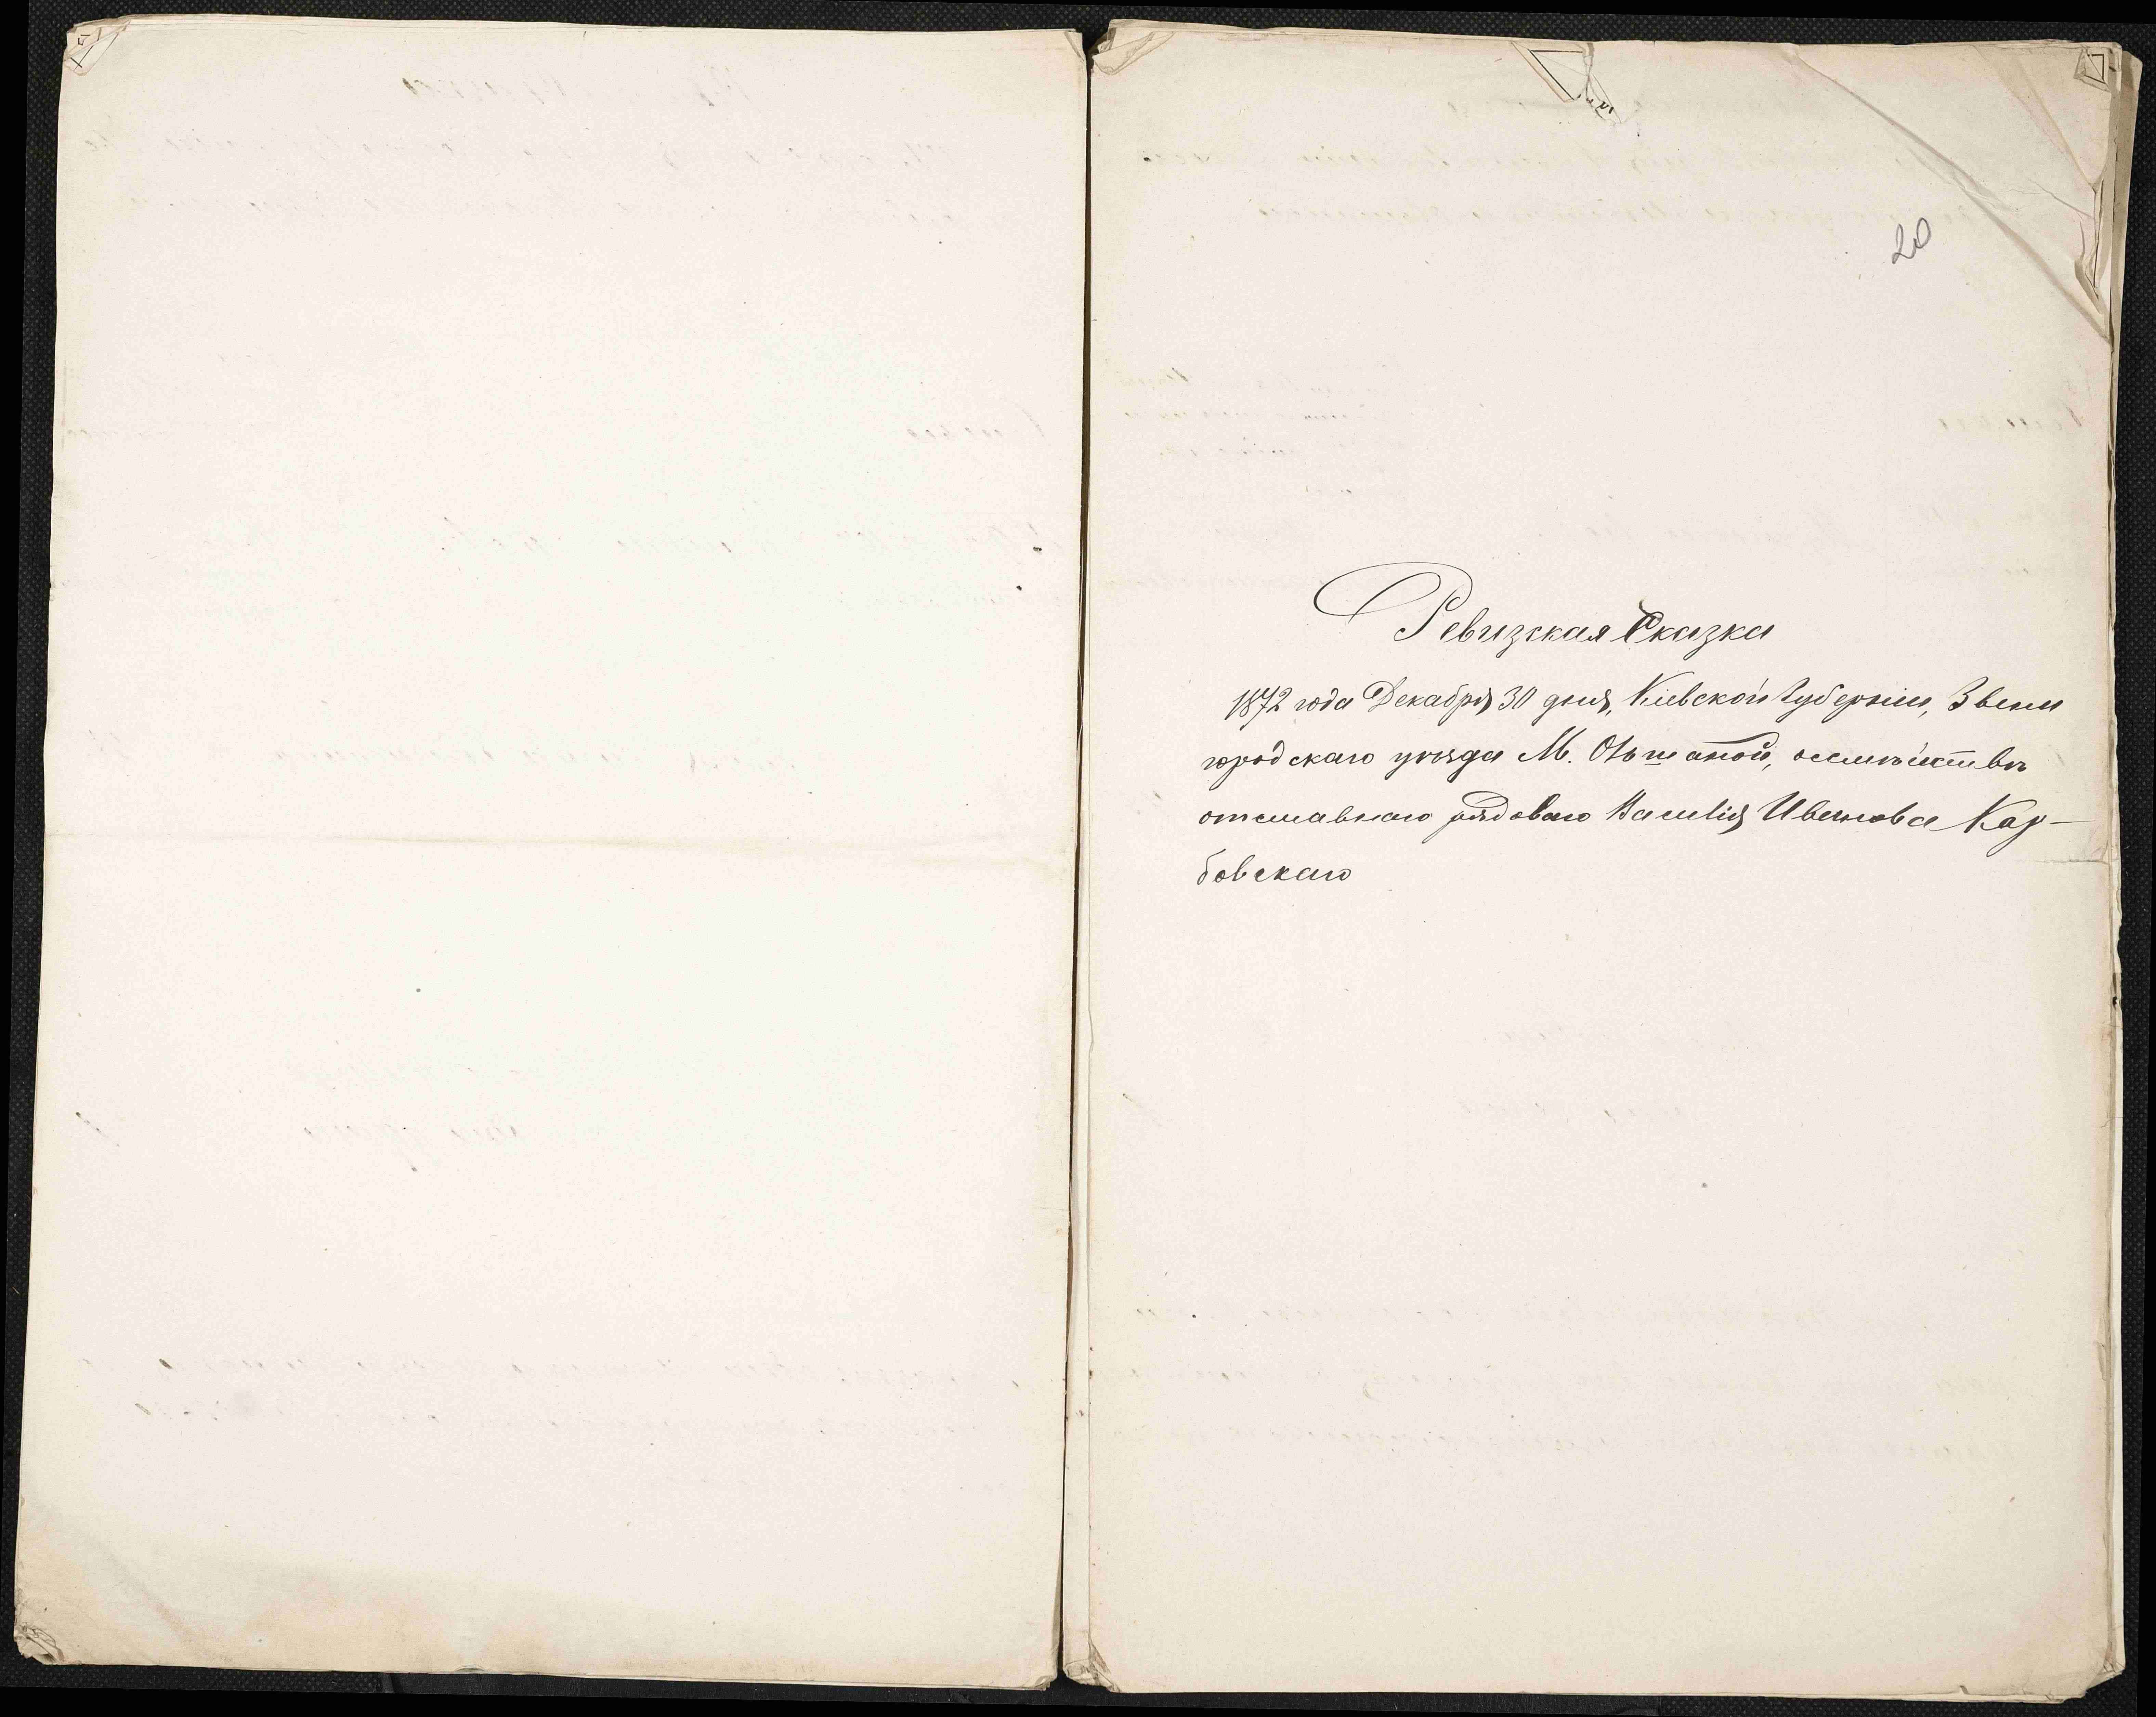 20
Ревизская Сказка
1872 года Декабря 30 дня, Кіевской Губерніи, Звени
городскаго уѣзда М. Ольшаной, о семѣйствѣ
отставнаго рядоваго Василія Иванова Кар-
бовскаго